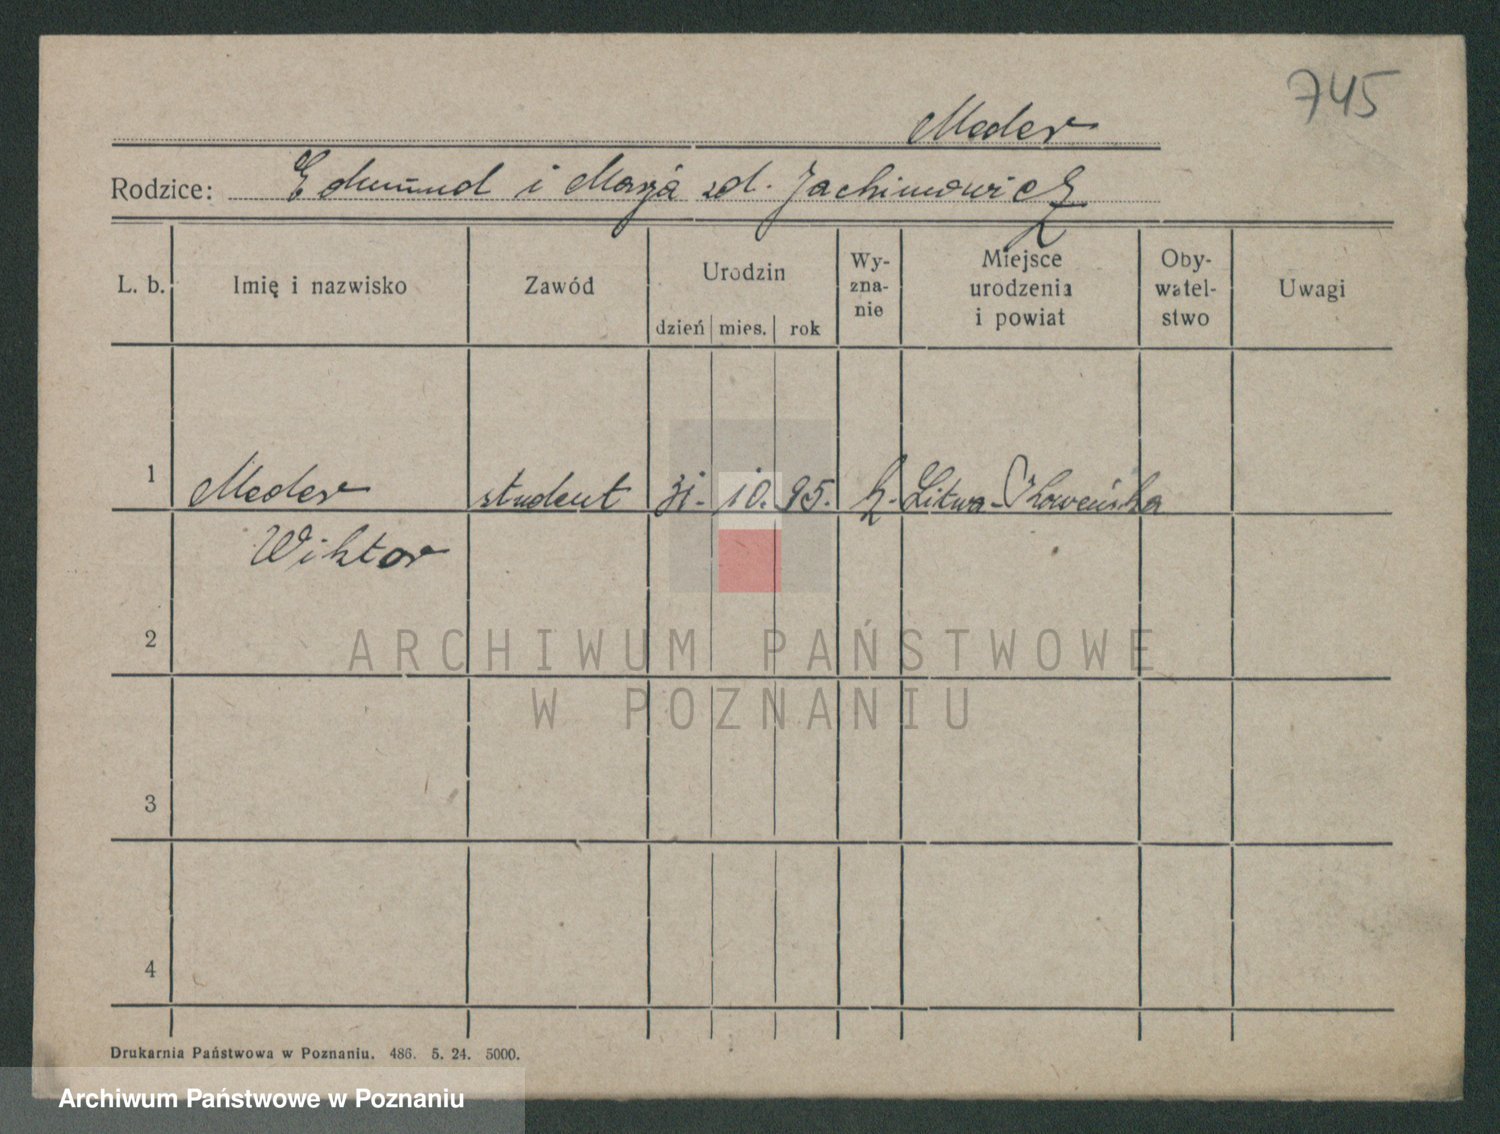 745
Meder
Rodzice: Edmund i Marja zd. Jachimowicz
L. b. Imię i nazwisko Zawód Urodzin dzień mies. rok Wy-zna-nie Miejsce urodzenia i powiat Oby-watel-stwo Uwagi
1 Meder student 31. 10. 95. Litwa-Kowieńska
Wiktor
2
ARCHIWUM PAŃSTWOWE
W POZNANIU
3
4
Drukarnia Państwowa w Poznaniu. 486. 5. 24. 5000.
Archiwum Państwowe w Poznaniu